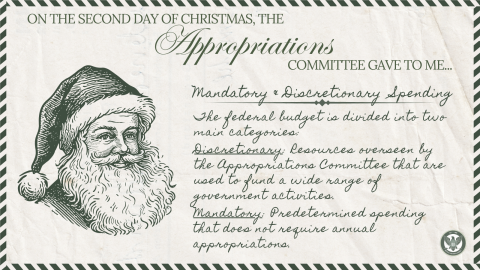 ON THE SECOND DAY OF CHRISTMAS, THE
Appropriations
COMMITTEE GAVE TO ME...
Mandatory & Discretionary Spending
The federal budget is divided into two
main categories:
Discretionary: Resources overseen by
the Appropriations Committee that are
used to fund a wide range of
government activities.
Mandatory: Predetermined spending
that does not require annual
appropriations.